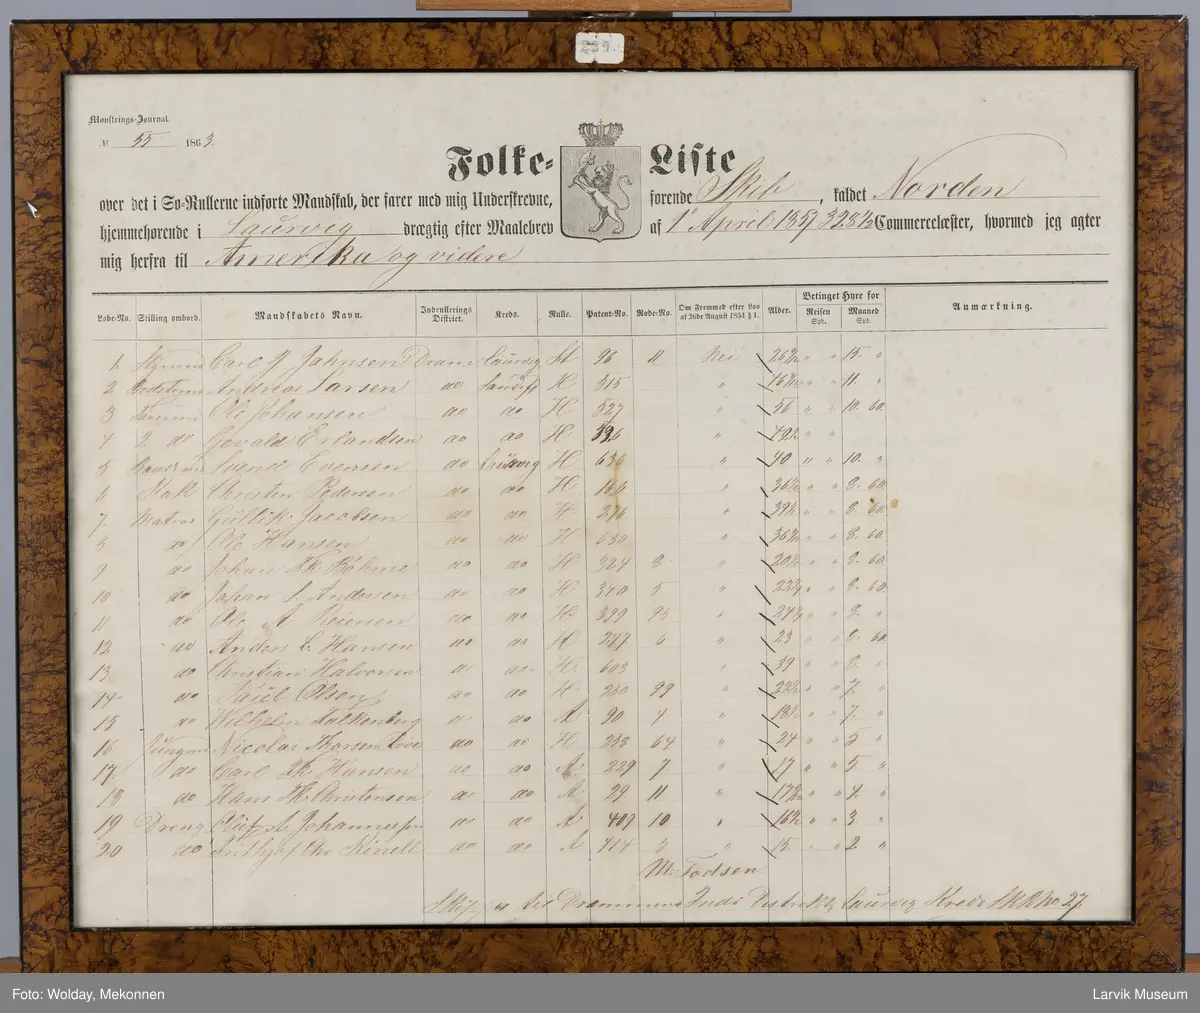 239.
Monstrings-Journal.
№ 55 1863.
Folke- Liste
over det i So-Rullerne indforte Mandskab, der farer med mig Underskrevne, forende Skib, kaldet Norden
hjemmehorende i Laurvig drægtig efter Maalebrev af 1st April 1857 328½ Commercelæster, hvormed jeg agter
mig herfra til Amerika og videre
Lobe-No. Stilling ombord. Mandskabets Navn. Indrullerings District. Kreds. Rulle. Patent-No. Rode-No. Om Fremmed efter Lov af 26de August 1854 § 1. Alder. Betinget Hyre for Reisen Spd. Maaned Spd. Anmærkning.
1 Carl J Jahnsen Dram Laurvig 96 11 Nei 15 "
2 Andreas Larsen do Laurvig H 515 " 11 "
3 Ole Johansen do do H 527 " 56 " " 10. 60
4 2 do Gerald Erlandsen do do H 596 " " "
5 Svend Evensen do Laurvig H 636 " 40 " " 10. "
6 Kok Christen Pedersen do do H 166 " " " 8. 60
7 Matros Gullik Jacobsen do do H 276 " " " 8. 60
8 do Ole Hansen do do H 630 " " " 8. 60
9 do Johan Fk Bohme do do H 324 8 " " " 8. 60
10 do Johan S. Andersen do do H 340 5 " " " 8. 60
11 do Ole A Reiersen do do H 399 95 " " " 8. "
12 do Anders C. Hansen do do H 247 6 " 23 " " 8. 60
13 do Christian Halvorsen do do H 603 " 39 " " 8. "
14 do Paul Olsen do do H 230 99 " " " 7. "
15 do Wilhelm Falkenberg do do A 90 4 " " " 7. "
16 Jungm Nicolai Thorsen do do H 233 64 " 24 " " 5 "
17 do Carl Fk Hansen do do A 229 7. " 17 " " 5 "
18 do Hans M. Christensen do do A 29 11 " " " 4 "
19 Dreng Oluf A Johannessen do do A 409 10 " " " 3 "
20 do Frithjof Chr Kinell do do A 414 " 15 " " 2 "
M. Todsen
er til Drammens Inds Distrikt, Laurvig Kreds SkR No 27
Foto: Wolday, Mekonnen
Larvik Museum